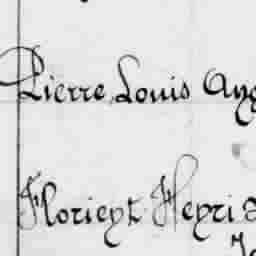 Pierre Louis Aug
Florient Henri